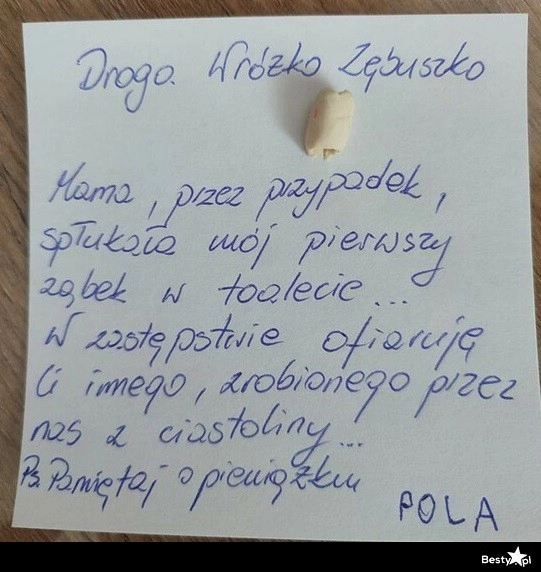 Droga Wróżko Zębuszko
Mama, przez przypadek,
spłukała mój pierwszy
ząbek w toalecie...
W zastępstwie ofiaruję
Ci innego, zrobionego przez
nas z ciastoliny...
Ps. Pamiętaj o pieniążku
POLA
Besty.pl